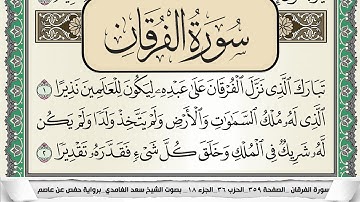 سُورَةُ الْفُرْقَانِ
تَبَارَكَ الَّذِي نَزَّلَ الْفُرْقَانَ عَلَىٰ عَبْدِهِ لِيَكُونَ لِلْعَالَمِينَ نَذِيرًا ١
الَّذِي لَهُ مُلْكُ السَّمَٰوَٰتِ وَالْأَرْضِ وَلَمْ يَتَّخِذْ وَلَدًا وَلَمْ يَكُن
لَّهُ شَرِيكٌ فِي الْمُلْكِ وَخَلَقَ كُلَّ شَيْءٍ فَقَدَّرَهُ تَقْدِيرًا ٢
سورة الفرقان _ الصفحة ٣٥٩ _ الحزب ٣٦ _ الجزء ١٨ _ بصوت الشيخ سعد الغامدي _ برواية حفص عن عاصم